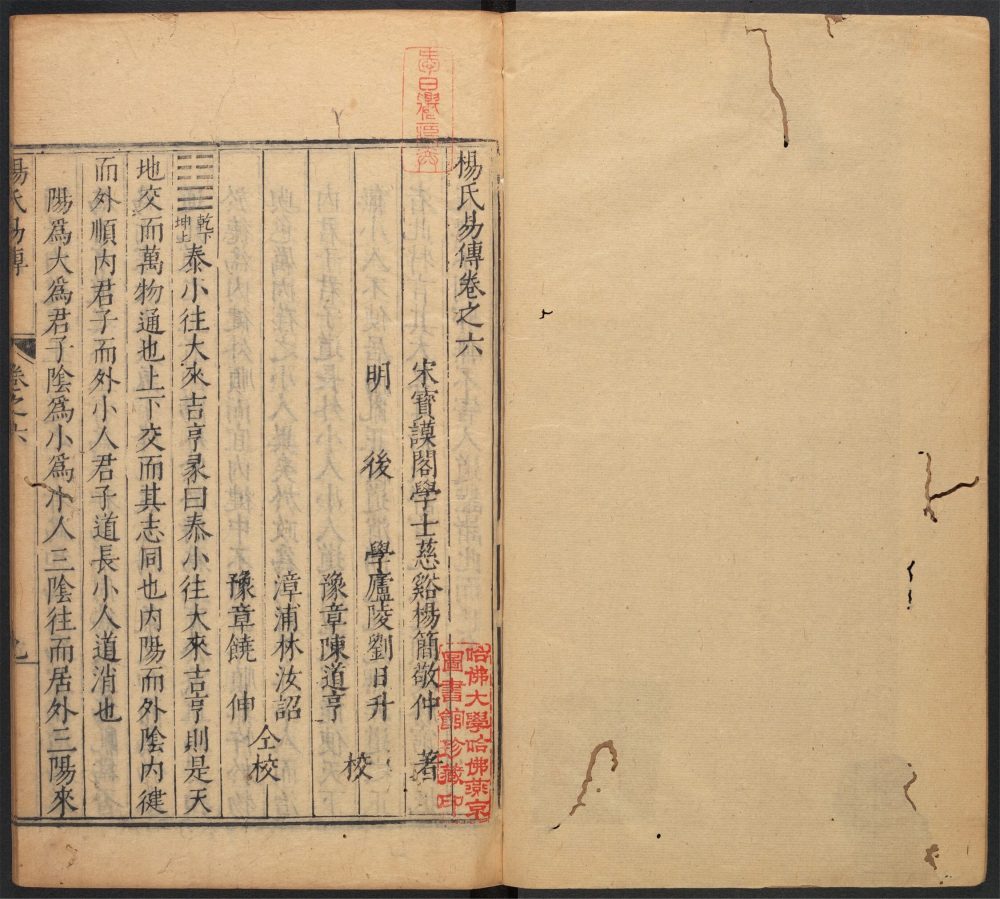 楊氏易傳卷之六
宋寶謨閣學士慈谿楊簡敬仲 著
明 後 學廬陵劉日升 校
豫章陳道亨
漳浦林汝詔
豫章饒 伸 仝校
乾下
坤上
泰小往大來吉亨彖曰泰小往大來吉亨則是天
地交而萬物通也上下交而其志同也内陽而外陰内健
而外順内君子而外小人君子道長小人道消也
陽爲大爲君子陰爲小爲小人三陰往而居外三陽來
楊氏易傳
卷之六
哈佛大學哈佛燕京
圖書館珍藏印